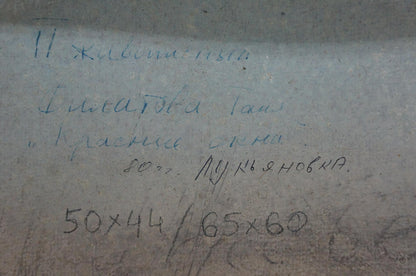 II живописный
Филатова Таня
„Красные окна"
80 гг. Лукьяновка.
50х44 / 65х60